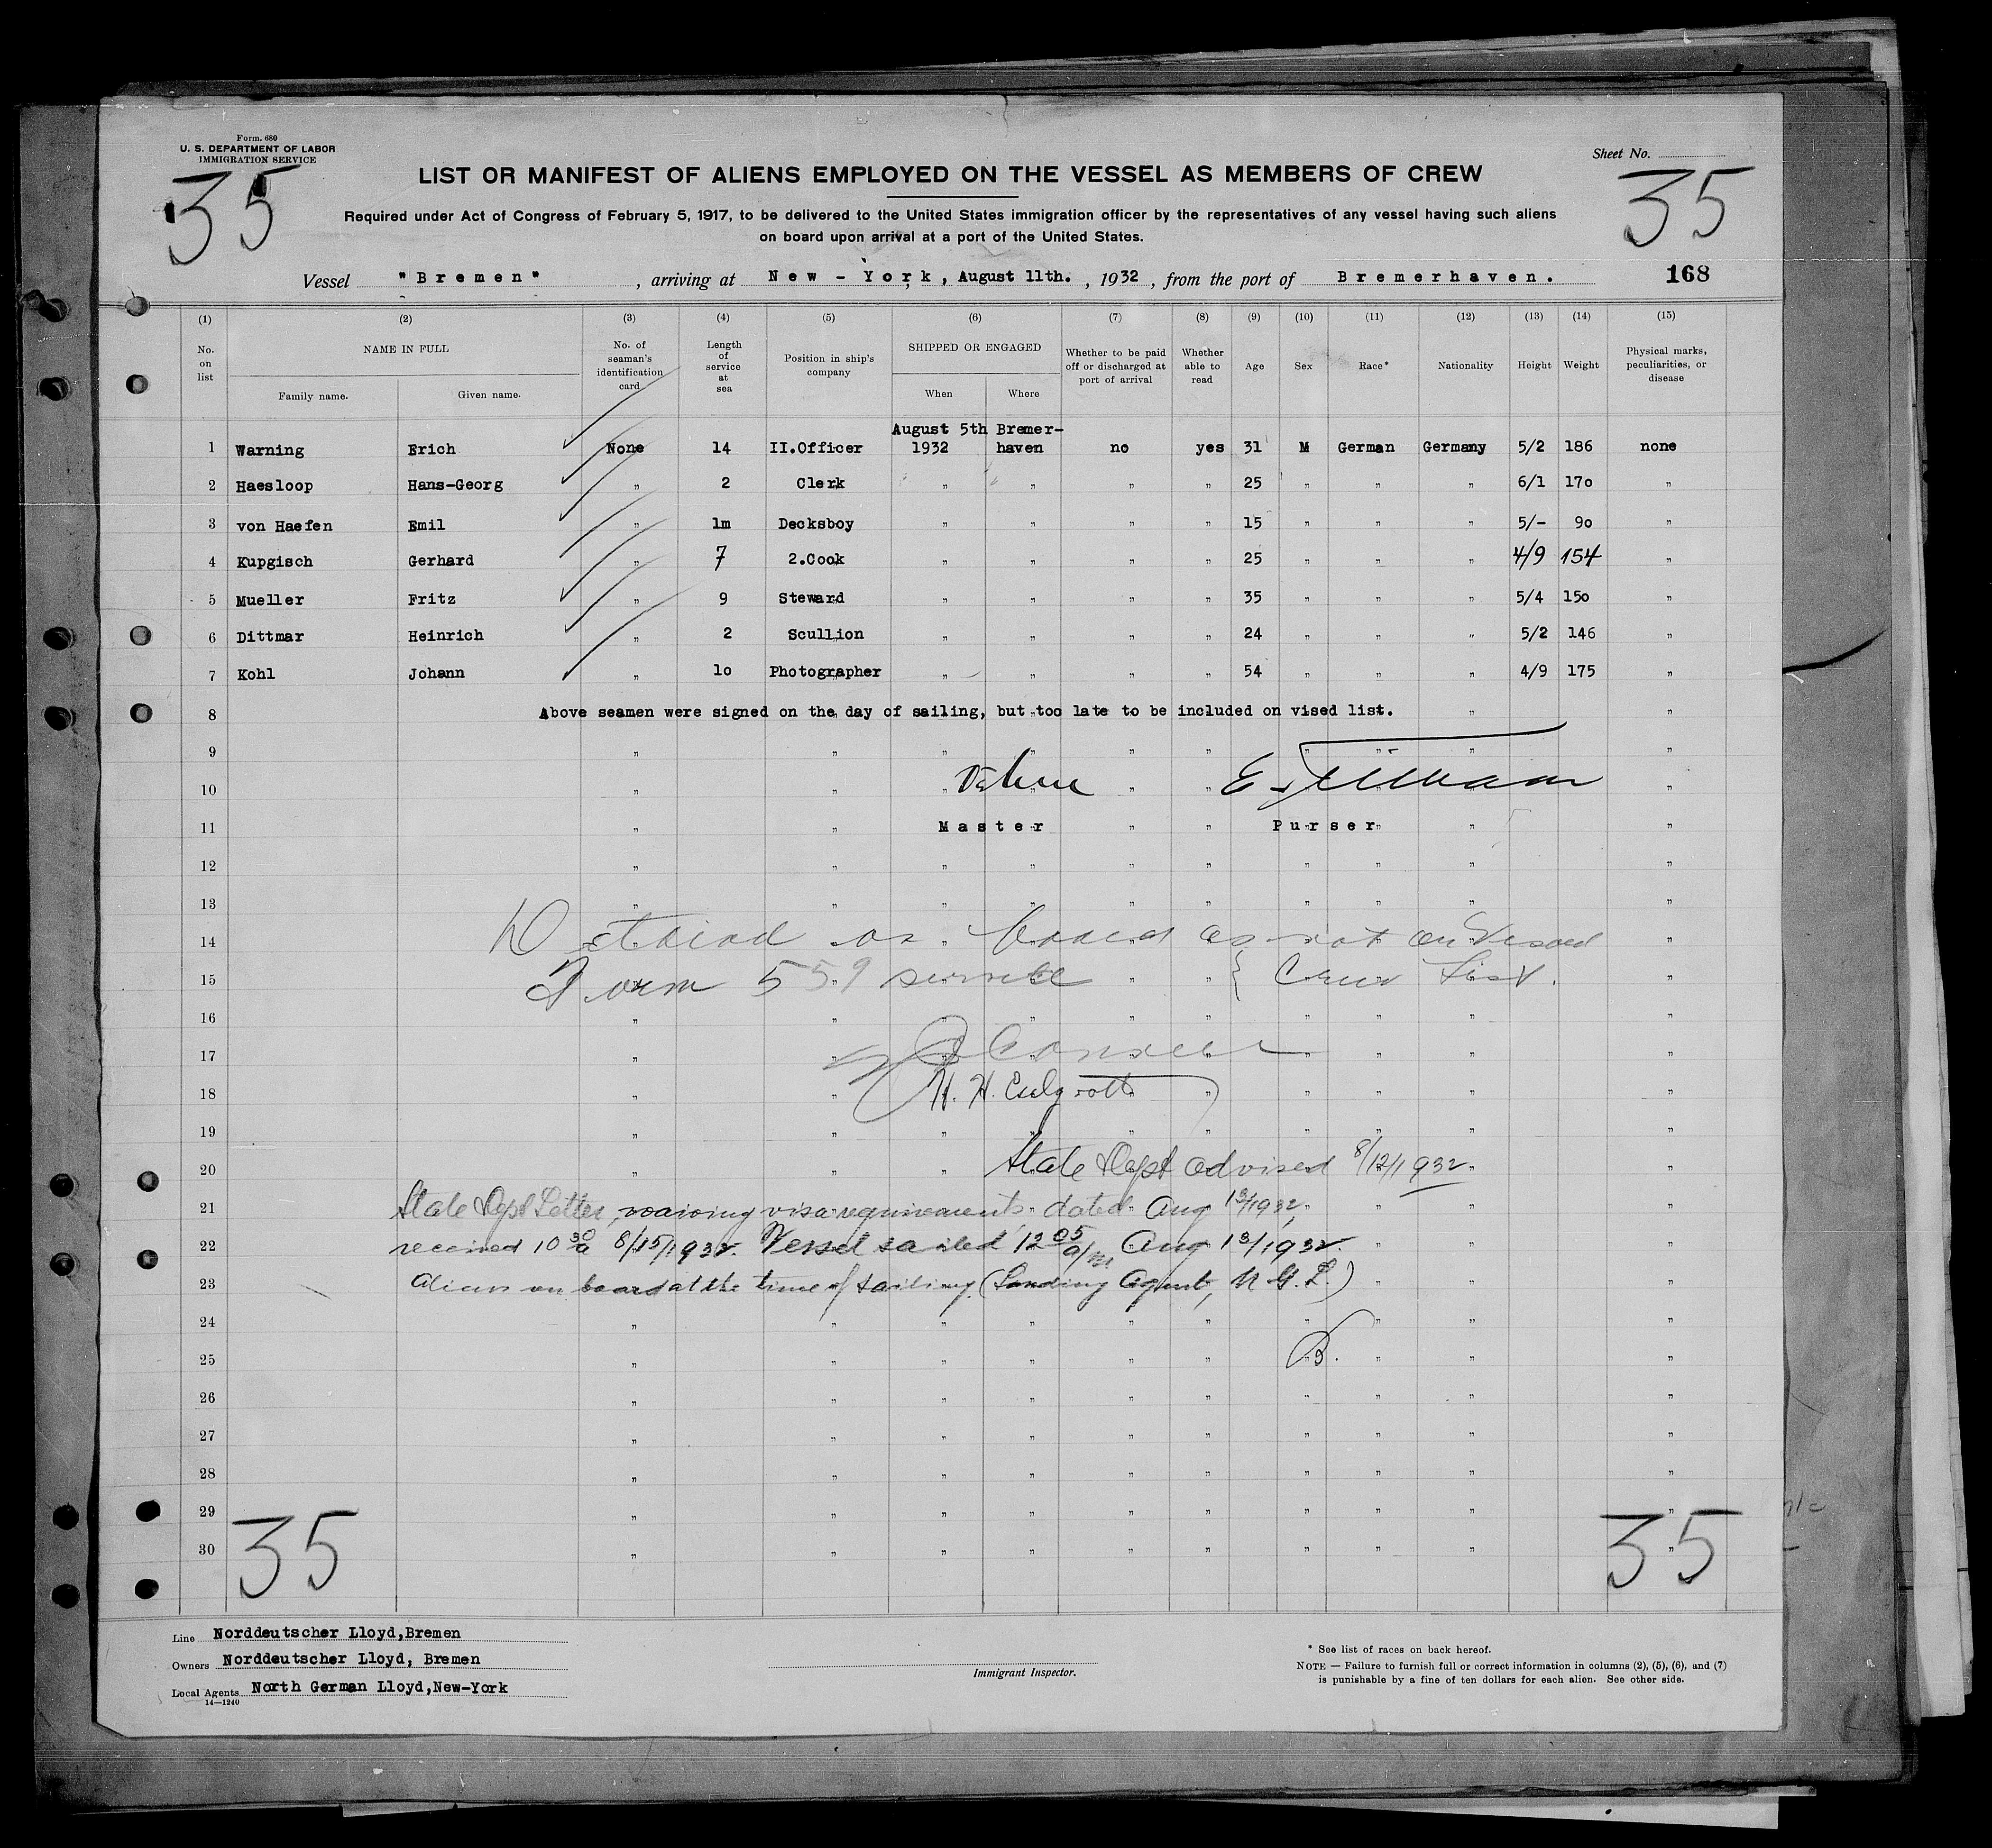 Form. 680
U. S. DEPARTMENT OF LABOR
IMMIGRATION SERVICE
Sheet No.
35
35
LIST OR MANIFEST OF ALIENS EMPLOYED ON THE VESSEL AS MEMBERS OF CREW
Required under Act of Congress of February 5, 1917, to be delivered to the United States immigration officer by the representatives of any vessel having such aliens
on board upon arrival at a port of the United States.
Vessel "Bremen", arriving at New-York, August 11th., 1932, from the port of Bremerhaven. 168
(1) (2) (3) (4) (5) (6) (7) (8) (9) (10) (11) (12) (13) (14) (15)
No. on list NAME IN FULL Family name. Given name. No. of seaman's identification card Length of service at sea Position in ship's company SHIPPED OR ENGAGED When Where Whether to be paid off or discharged at port of arrival Whether able to read Age Sex Race* Nationality Height Weight Physical marks, peculiarities, or disease
1 Warning Erich None 14 II.Officer August 5th 1932 Bremer-haven no yes 31 M German Germany 5/2 186 none
2 Haesloop Hans-Georg " 2 Clerk " " " " 25 " " " 6/1 17o "
3 von Haefen Emil " 1m Decksboy " " " " 15 " " " 5/- 9o "
4 Kupgisch Gerhard " 7 2.Cook " " " " 25 " " " 4/9 154 "
5 Mueller Fritz " 9 Steward " " " " 35 " " " 5/4 15o "
6 Dittmar Heinrich " 2 Scullion " " " " 24 " " " 5/2 146 "
7 Kohl Johann " 1o Photographer " " " " 54 " " " 4/9 175 "
8 Above seamen were signed on the day of sailing, but too late to be included on vised list. " "
9 " " " " " " " " " "
10 " " " " " "
11 " " Master " " Purser " "
12 " " " " " " " " " "
13 " " " " " " " " " "
14 Detained on board as not on Visaed "
15 Form 559 served " " { Crew List. "
16 " " " " " " " " " "
17 " " " " "
18 " " H. H. " " " " "
19 " " " " " " " " " "
20 " " " State Dept advised 8/12/1932 "
21 State Dept Letter, waiving visa requirements, dated Aug 12/1932, " " "
22 received 10 30 a 8/15/1932. Vessel sailed 12 05 a/m Aug 13/1932. " " "
23 Aliens on board at the time of sailing (Landing Agent, N. G. L.) " " "
24 " " " " " " " " " "
25 " " " " " " B. " " "
26 " " " " " " " " " "
27 " " " " " " " " " "
28 " " " " " " " " " "
29 " " " " " " " " " "
30 " " " " " " " " " "
35
35
Line Norddeutscher Lloyd,Bremen
Owners Norddeutscher Lloyd, Bremen
Local Agents North German Lloyd,New-York
14—1240
Immigrant Inspector.
* See list of races on back hereof.
NOTE — Failure to furnish full or correct information in columns (2), (5), (6), and (7)
is punishable by a fine of ten dollars for each alien. See other side.